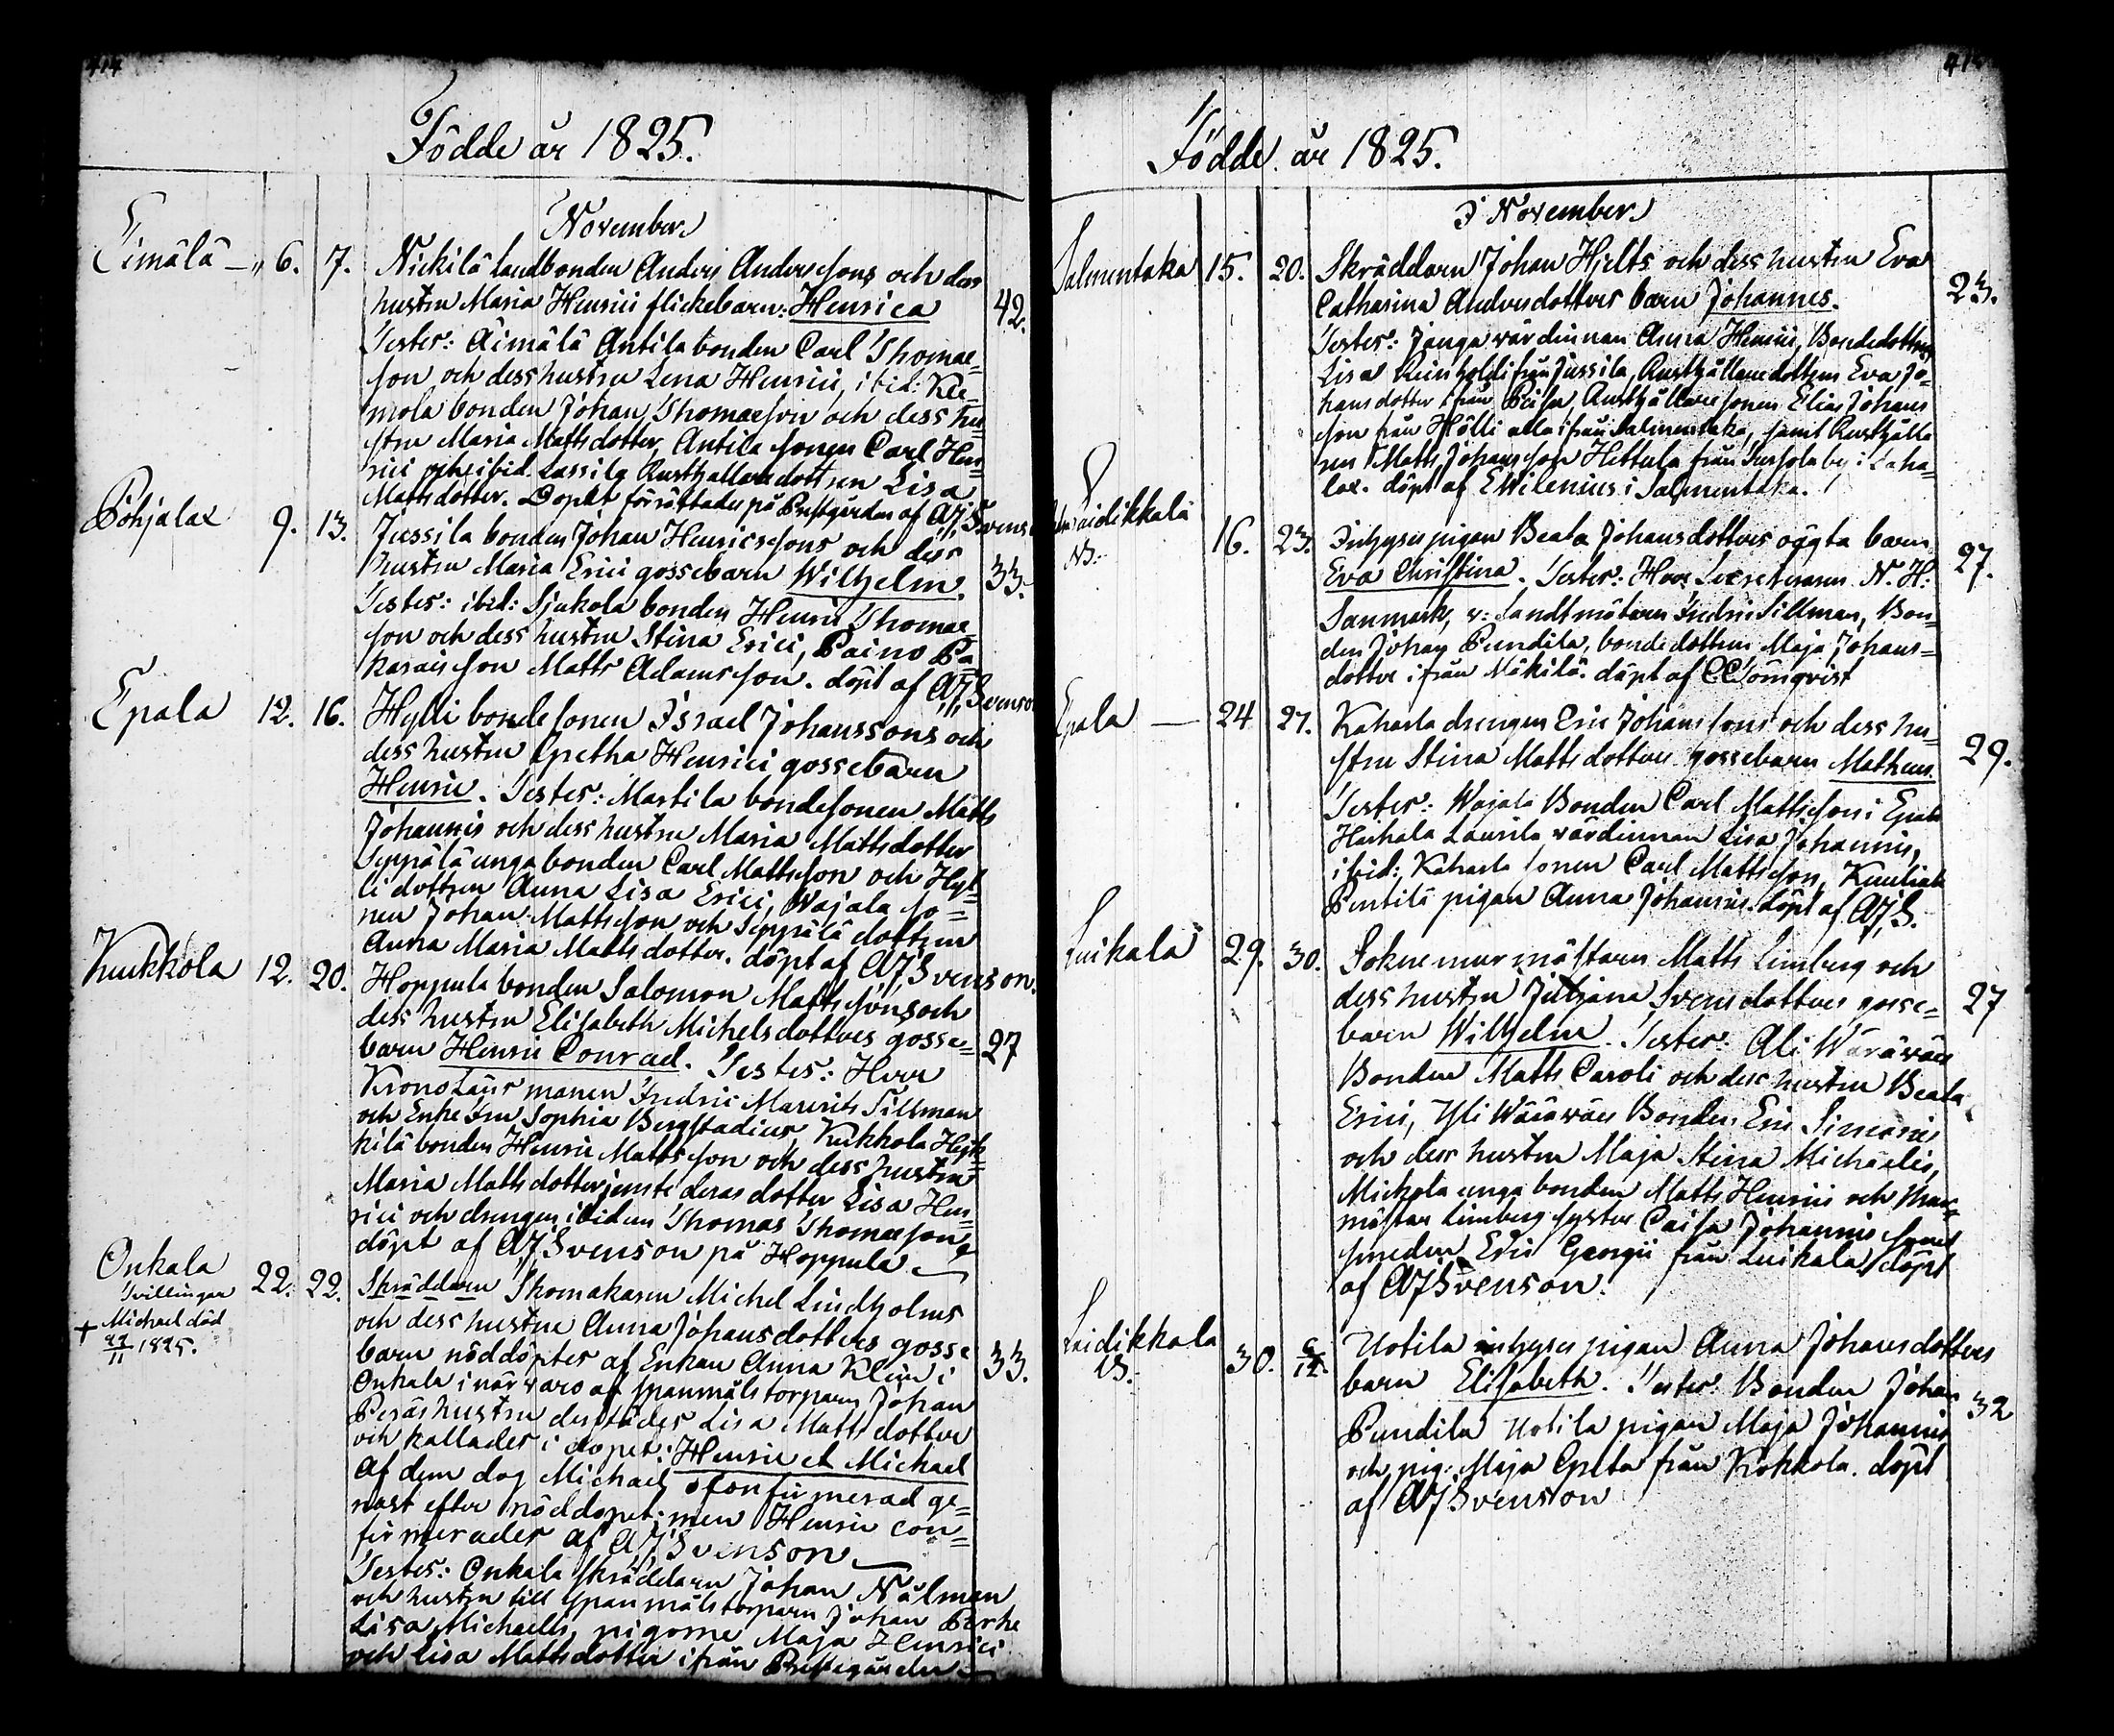 414
Födde år 1825.
November.
Äimälä — 6. 7. Nickilä landbonden Anders Anderssons och dess
hustru Maria Henrici flickebarn: Henrica 42.
Testes: Äimälä Antila bonden Carl Thomae-
son och dess hustru Lena Henrici, ibid: Kle-
mola bonden Johan Thomaeson och dess hu-
stru Maria Mattsdotter, Antila sonen Carl Hen-
rici och ibid. Lassila Rusthållaredottren Lisa
Mattsdotter. Dopet förrättades på Prestgården af AJSvenson
Pohjalax 9. 13. Jussila bonden Johan Henricssons och dess
hustru Maria Erici gossebarn Wilhelm. 33.
Testes: ibid: Sjukola bonden Henric Thomae-
son och dess hustru Stina Erici, Paino Pa-
karais son Matts Adamsson. döpt af AJSvenson
Epala 12. 16. Hylli bondesonen Israel Johanssons och
dess hustru Gretha Henrici gossebarn
Henric. Testes: Martila bondesonen Matts
Johannis och dess hustru Maria Mattsdotter
Seppälä unga bonden Carl Mattsson och Hyl-
li dottren Anna Lisa Erici, Wajala so-
nen Johan Mattsson och Seppälä dottren
Anna Maria Mattsdotter. döpt af AJSvenson.
Kukkola 12. 20. Hoppula bonden Salomon Mattssons och
dess hustru Elisabeth Michelsdotters gosse-
barn Henric Conrad. Testes: Herr 27
Krono Länsmanen Fredric Maurits Tillman
och Enke Fru Sophia Bergstadius, Kukkola Heik-
kilä bonden Henric Mattsson och dess hustru
Maria Mattsdotter jemte deras dotter Lisa Hen-
rici och drengen ibidem Thomas Thomaeson
döpt af AJSvenson på Hoppula
Onkala 22. 22. Skräddaren Skomakaren Michel Lindholms
Tvillingar
+ Michael död
22/11 1825.
och dess hustru Anna Johansdotters gosse
barn nöddöpter af Enkan Anna Klein i 33.
Onkala i närwaro af spanmåls torparn Johan
Peräs hustru derstädes Lisa Mattsdotter
och kallades i dopet: Henric et Michael
Af dem dog Michael oconfirmerad ge-
nast efter nöddopet: men Henric con-
firmerades af AJSvenson
Testes: Onkala skräddaren Johan Nälman
och hustrn till spanmåls torparn Johan
Lisa Michaelis, pigorne Maja Henrici
och Lisa Mattsdotter ifrån Prestegården
Födde år 1825.
I November.
Salmentaka 15. 20. Skräddaren Johan Hjelts och dess hustru Eva
Catharina Andersdotters barn Johannes. 23.
Testes: Janga wärdinnan Anna Henrici, Bondedottren
Lisa Reinholdi från Jussila, Rusthållaredottren Eva Jo-
hansdotter ifrån Peisa, Rusthållaresonen Elias Johans
son från Hölli alla ifrån Salmentaka, samt Rusthålla
ren Matts Johansson Hettula från by i Laha-
lax. döpt af EWilenius i Salmentaka.
Laidikkala
NB: 16. 23. Inhyses pigan Beata Johansdotters oägta barn
Eva Christina. Testes: Herr Secreteraren N. H: 27.
Sanmark, v: Landtmätaren Fredric Tillman, Bon-
den Johan Pundila, bondedottren Maja Johans-
dotter ifrån Näkilä. döpt af CCTömqvist
Epala — 24 27. Kaharla drengen Eric Johanssons och dess hu-
stru Stina Mattsdotters gossebarn Matheus. 29.
Testes: Wajala Bonden Carl Mattsson i Epala
Laurila wärdinnan Lisa Johannis,
ibid: Kaharla sonen Carl Mattsson,
Pentilä pigan Anna Johannis. döpt af AJS.
Luikala 29. 30. Sokne murmästaren Matts Limberg och
dess hustru Juliana Svensdotters gosse- 27
barn Wilhelm. Testes: Ali Wäräwäs
Bonden Matts Caroli och dess hustru Beata
Erici, Yli Wäräwäs Bonden Eric Simonis
och dess hustru Maja Stina Michaelis,
Mickola unga bonden Matts Henrici och Mur-
mästar Limbergs syster Caisa Johannis samt
smeden Eric Georgii från Luikala. döpt
af AJSvenson.
Laidikkala
NB. 30. 6/12. Uotila inhyses pigan Anna Johansdotters
barn Elisabeth. Testes: Bonden Johan 32
Pundila Uotila pigan Maja Johannis
och pig: Maja Greta från Kokkola. döpt
af AJSvenson